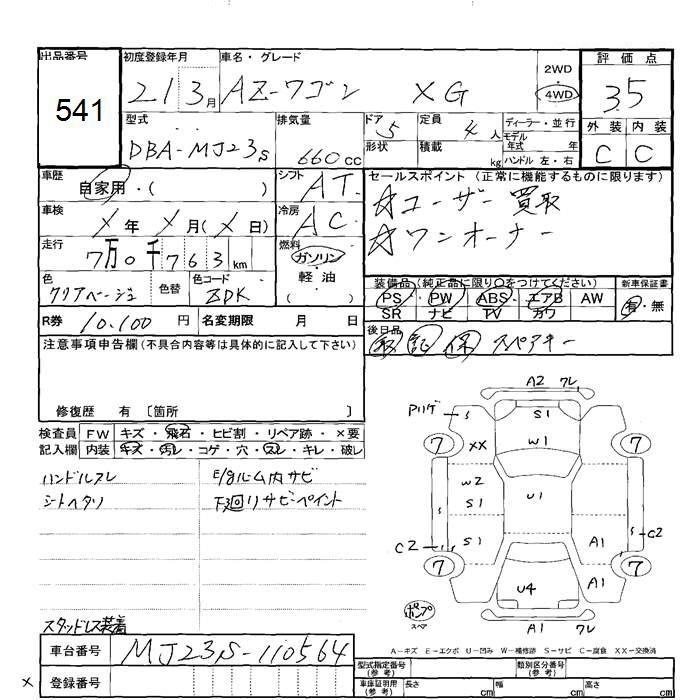 出品番号 初度登録年月 車名・グレード 2WD 評価点
541 21 3月 AZ-ワゴン XG 4WD 35
外装 内装
C C
型式 排気量 ドア 定員 ディーラー・並行
DBA-MJ23S 660cc 5 4人 モデル年式 年
形状 積載 kg ハンドル 左・右
車歴 シフト セールスポイント(正常に機能するものに限ります)
自家用・( ) AT ☆ユーザー買取
車検 冷房 ☆ワンオーナー
X年 X月(X日) AC
走行 燃料
7万0千763km ガソリン・軽油
( )
色 色替 色コード 装備品(純正品に限り○をつけてください) 新車保証書
クリアベージュ ZDK PS・PW・ABS・エアB AW 有・無
SR ナビ TV カワ
R券 10,100円 名変期限 月 日 後日品
取 証 保 スペアキー
注意事項申告欄(不具合内容等は具体的に記入して下さい)
修復歴 有 〔箇所 〕
検査員 FW キズ・飛石・ヒビ割・リペア跡・×要
記入欄 内装 キズ・汚レ・コゲ・穴・スレ・キレ・破レ
ハンドルスレ E/gルーム内サビ
シートヘタリ 下廻リサビペイント
A2 フレ
Pハゲ S S1
7 XX W1 7
W2
S1 U1
S S
C2 S1 A1 C2
7 U4 A1 7
ポンプ
スペア A1 フレ
A－キズ E－エクボ U－凹み W－補修跡 S－サビ C－腐食 XX－交換済
スタッドレス装着
車台番号 MJ23S-110564
型式指定番号(参考) 類別区分番号(参考)
× 登録番号 車庫証明用(参考) 長さ cm 幅 cm 高さ cm